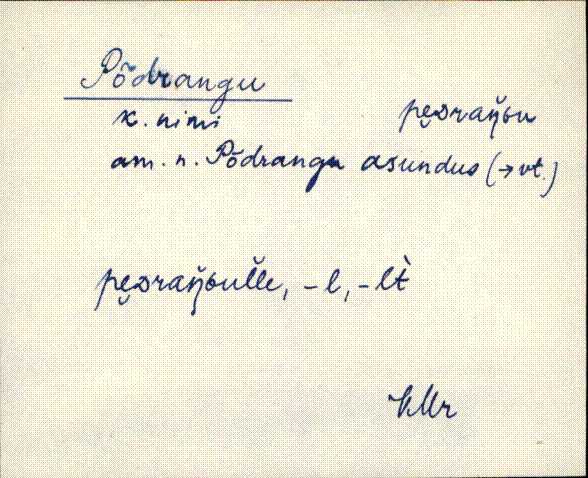 Põdrangu
x. nimi pe̮ᴅraŋ̆ɢu
am. n. Põdrangu asundus (→ vt.)
pe̮ᴅraŋ̆ɢulle, -l, -lt
VMr